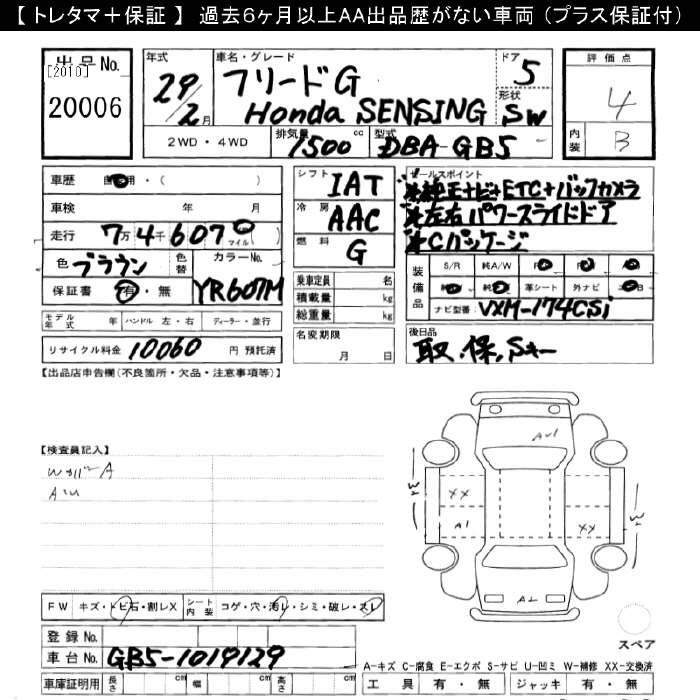 【 トレタマ＋保証 】 過去6ヶ月以上AA出品歴がない車両（プラス保証付）
出品No.
[2010]
20006
年式
29/2月
車名・グレード
フリードG
Honda SENSING
ドア
5
形状
SW
評価点
4
内装
B
2WD・4WD
排気量
1500cc
型式
DBA-GB5
車歴
・(　)
車検 年 月
走行 7万4千607 マイル(　)
色 ブラウン
色替
カラーNo.
YR607M
保証書 有・無
モデル年式 年
ハンドル 左・右
ディーラー・並行
リサイクル料金 10060 円 預託済
シフト IAT
冷房 AAC
燃料 G
乗車定員 名
積載量 kg
総重量 kg
名変期限
月 日
セールスポイント
※純正ナビ+ETC+バックカメラ
※左右パワースライドドア
※Cパッケージ
装備品
S/R 純A/W
革シート 外ナビ
ナビ型番 VXM-174CSi
後日品
取.保.Sキー
【出品店申告欄(不良箇所・欠品・注意事項等)】
【検査員記入】
A
XX
A1
XX
FW キズ・トビ石・割レX
シート内装 コゲ・穴・汚レ・シミ・破レ・スレ
登録No.
車台No. GB5-1019129
車庫証明用 長さ cm 幅 cm 高さ cm
スペア
A-キズ C-腐食 E-エクボ S-サビ U-凹ミ W-補修 XX-交換済
工具 有・無 ジャッキ 有・無